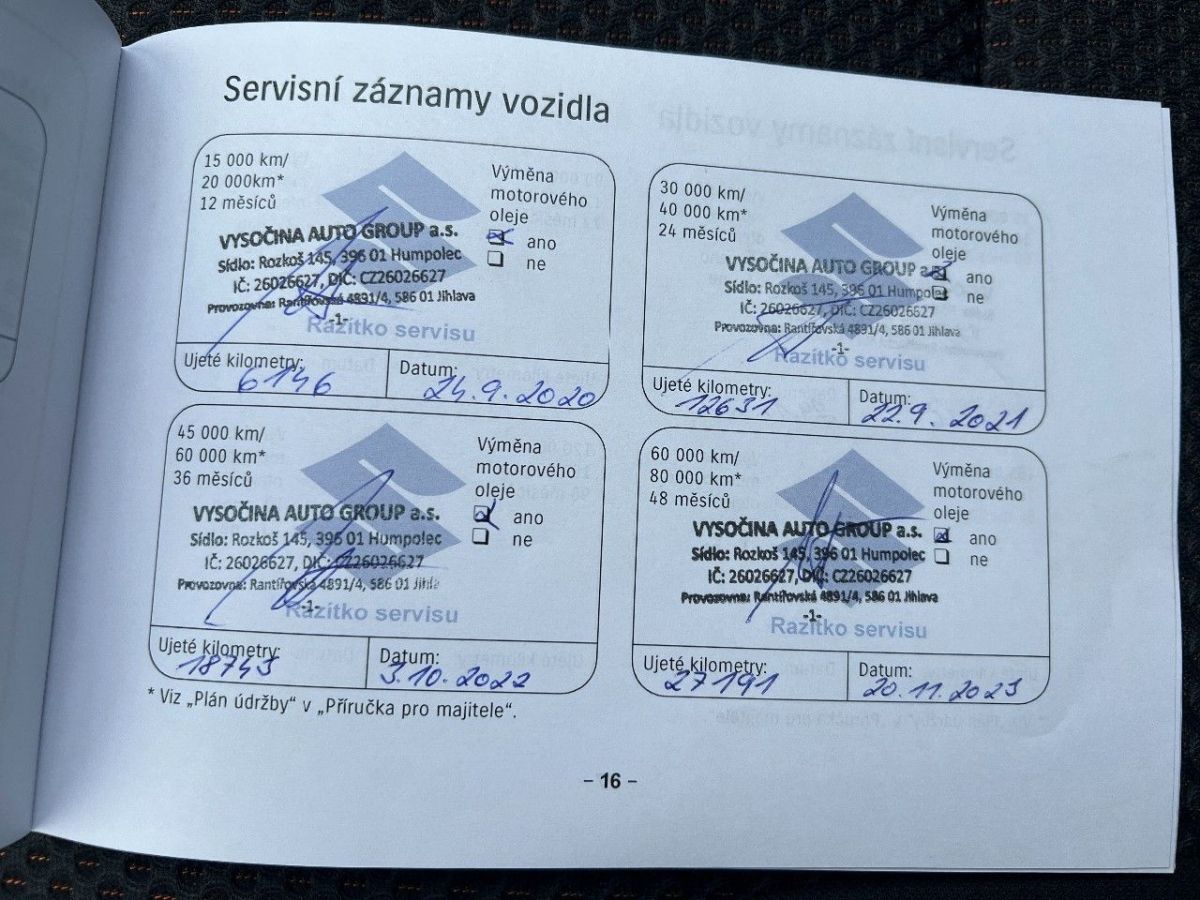 Servisní záznamy vozidla
15 000 km/
20 000km*
12 měsíců
Výměna
motorového
oleje
ano
ne
VYSOČINA AUTO GROUP a.s.
Sídlo: Rozkoš 145, 396 01 Humpolec
IČ: 26026627, DIČ: CZ26026627
Provozovna: Rantířovská 4891/4, 586 01 Jihlava
-1-
Razítko servisu
Ujeté kilometry:
6146
Datum:
24.9.2020
30 000 km/
40 000 km*
24 měsíců
Výměna
motorového
oleje
ano
ne
VYSOČINA AUTO GROUP a
Sídlo: Rozkoš 145, 396 01 Humpo
IČ: 26026627, DIČ: CZ26026627
Provozovna: Rantířovská 4891/4, 586 01 Jihlava
-1-
Razítko servisu
Ujeté kilometry:
12631
Datum:
22.9.2021
45 000 km/
60 000 km*
36 měsíců
Výměna
motorového
oleje
ano
ne
VYSOČINA AUTO GROUP a.s.
Sídlo: Rozkoš 145, 396 01 Humpolec
IČ: 26026627, DIČ: CZ26026627
Provozovna: Rantířovská 4891/4, 586 01 Jihla
-1-
Razítko servisu
Ujeté kilometry:
18743
Datum:
3.10.2022
60 000 km/
80 000 km*
48 měsíců
Výměna
motorového
oleje
ano
ne
VYSOČINA AUTO GROUP a.s.
Sídlo: Rozkoš 145, 396 01 Humpolec
IČ: 26026627, DIČ: CZ26026627
Provozovna: Rantířovská 4891/4, 586 01 Jihlava
-1-
Razítko servisu
Ujeté kilometry:
27191
Datum:
20.11.2023
* Viz „Plán údržby“ v „Příručka pro majitele“.
– 16 –